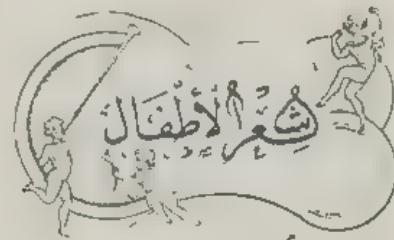 شِعْرُ الأَطْفَالِ